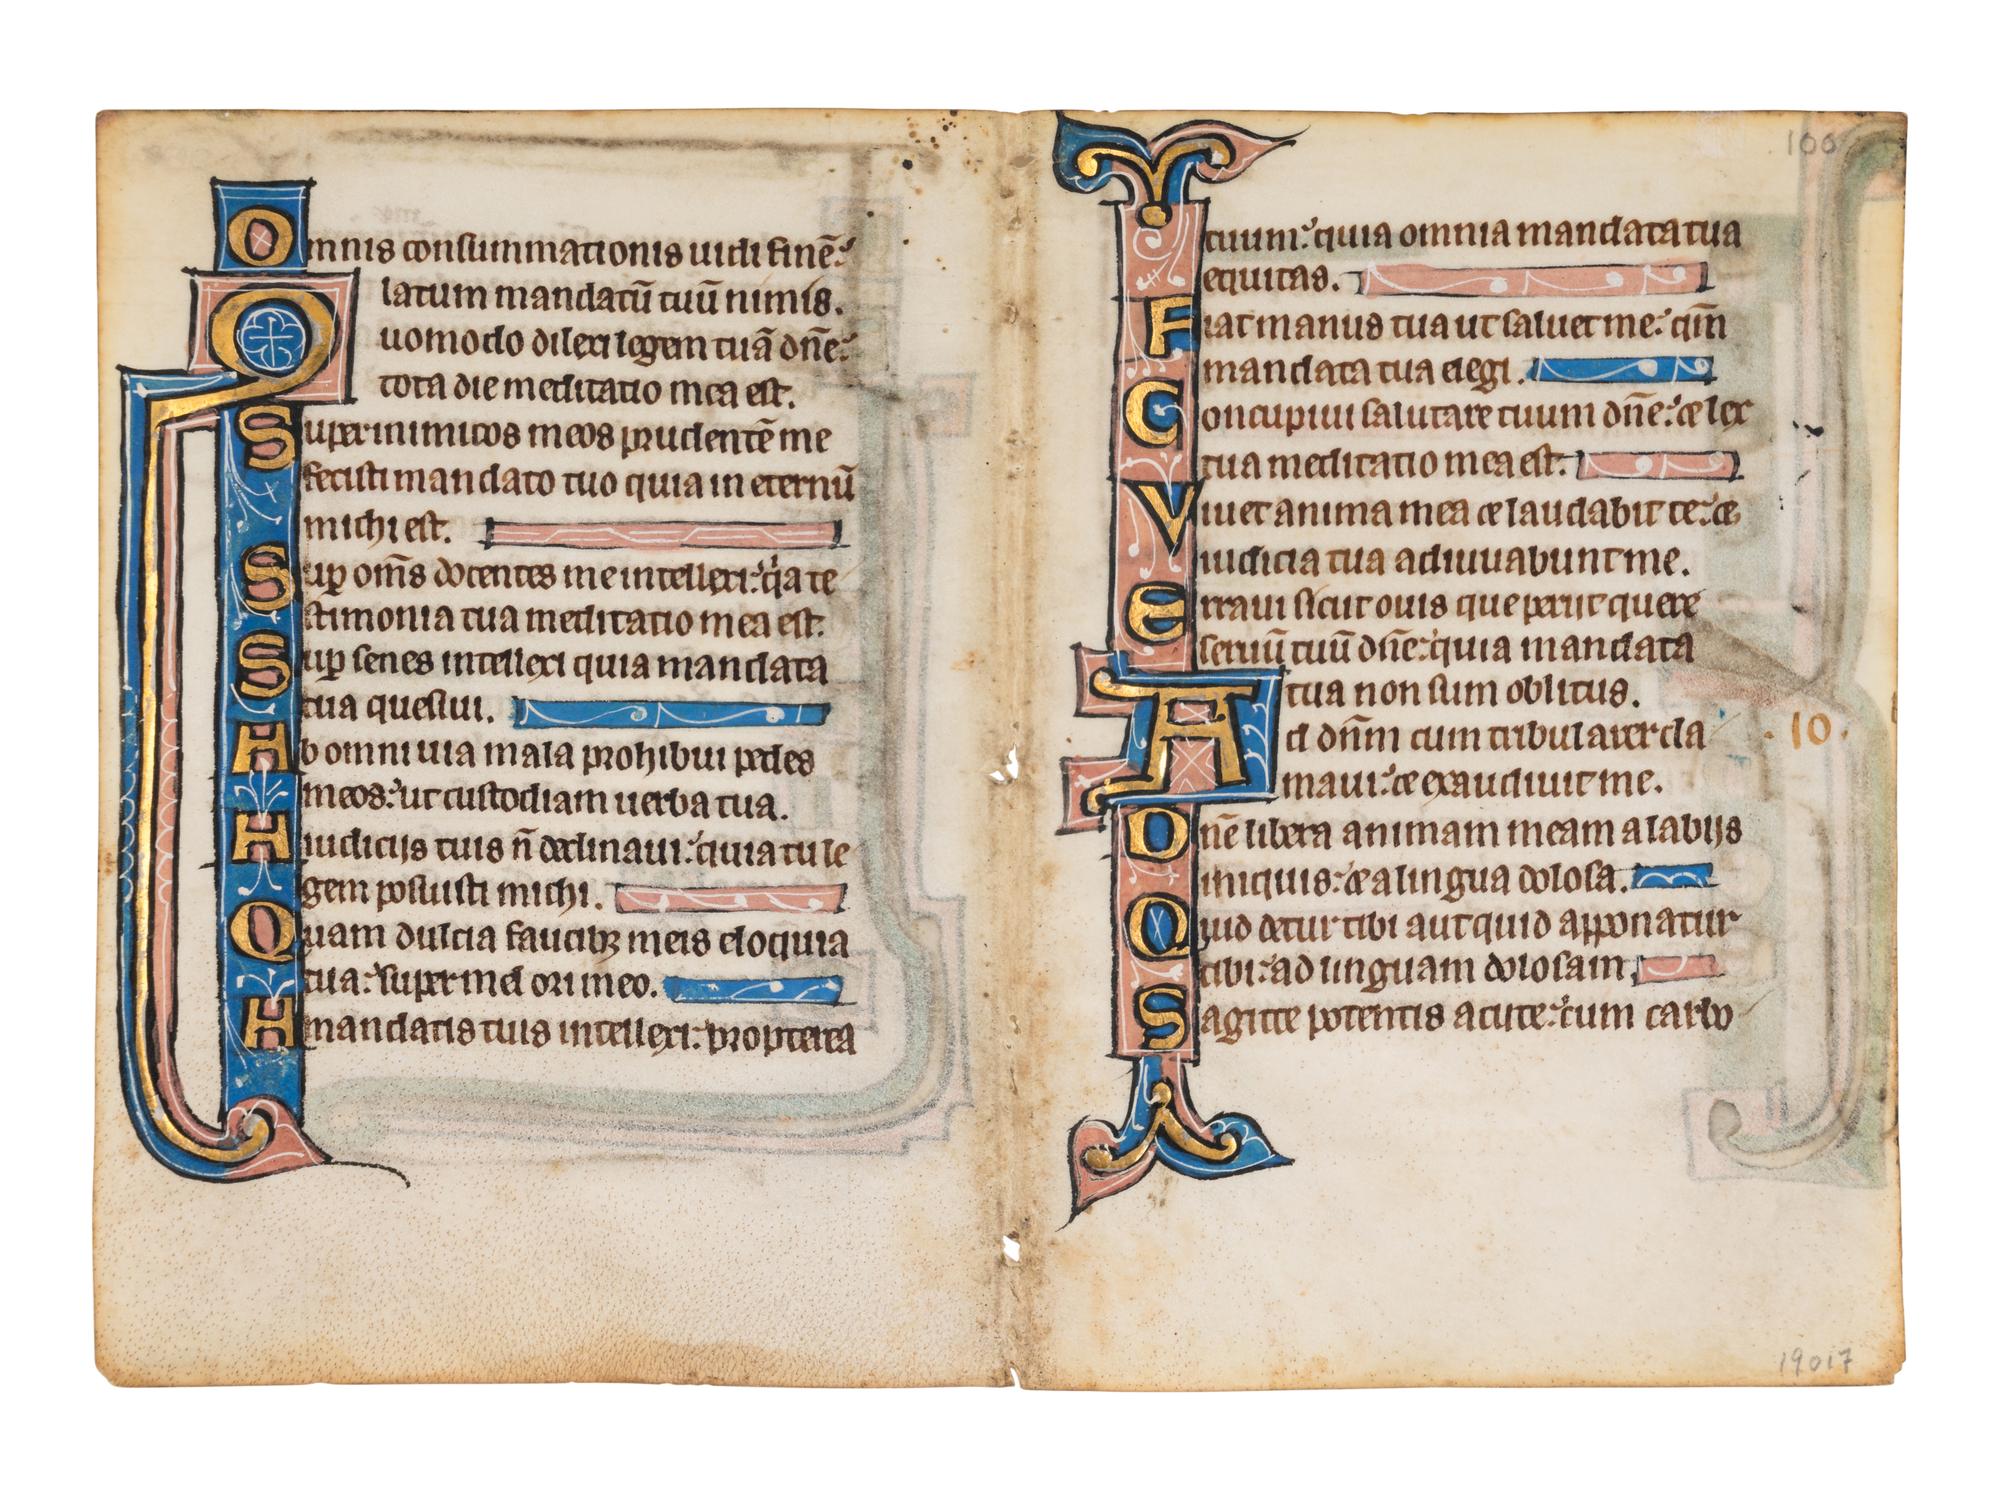 Omnis consummationis uidi finē:
latum mandatū tuū nimis.
Quomodo dilexi legem tuā dn̄e:
tota die meditatio mea est.
Super inimicos meos prudentē me
fecisti mandato tuo quia in eternū
michi est.
Sup om̄s docentes me intellexi: q̇a te
stimonia tua meditatio mea est.
Sup senes intellexi quia mandata
tua quesiui.
Ab omni uia mala prohibui pedes
meos: ut custodiam uerba tua.
A iudicijs tuis n̄ declinaui: quia tu le
gem posuisti michi.
Quam dulcia faucibꝫ meis eloquia
tua: super mel ori meo.
A mandatis tuis intellexi: propterea
100
tuum: quia omnia mandata tua
equitas.
Fiat manus tua ut saluet me: qm̄
mandata tua elegi.
Concupiui salutare tuum dn̄e: et lex
tua meditatio mea est.
Viuet anima mea et laudabit te: et
iudicia tua adiuuabunt me.
Erraui sicut ouis que periit quere
seruū tuū dn̄e: quia mandata
tua non sum oblitus.
Ad dn̄m cum tribularer cla
maui: et exaudiuit me.
.10.
Dn̄e libera animam meam a labijs
iniquis: et a lingua dolosa.
Quid detur tibi aut quid apponatur
tibi: ad linguam dolosam.
Sagitte potentis acute: cum carbo
19017